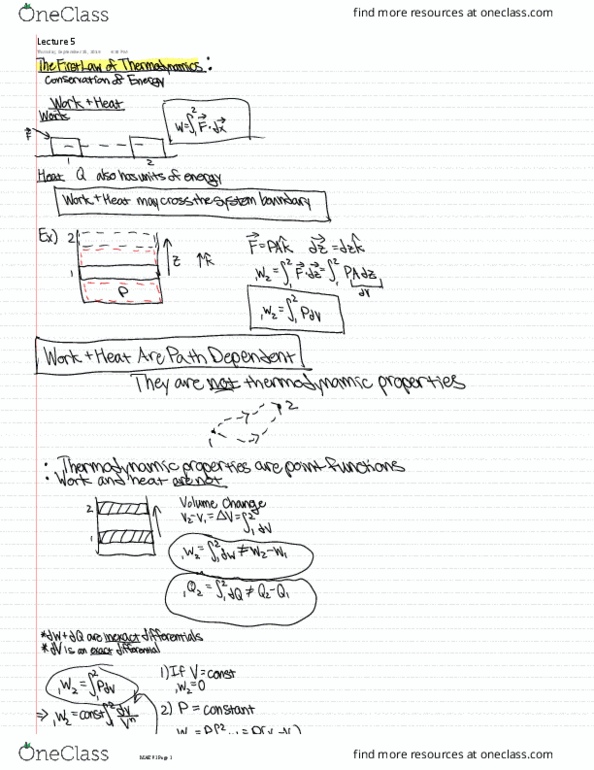 OneClass
find more resources at oneclass.com
Lecture 5
The First Law of Thermodynamics:
Conservation of Energy
Work + Heat
Work
W=∫₁² F⃗·dx⃗
F⃗
1 2
Heat Q also has units of energy
Work + Heat may cross the system boundary
Ex) 2
1
P
z ↑k̂
F⃗=PAk̂ dz⃗=dzk̂
₁W₂=∫₁² F⃗·dz⃗=∫₁² PAdz
dV
₁W₂=∫₁² PdV
Work + Heat Are Path Dependent
They are not thermodynamic properties
1 2
• Thermodynamic properties are point functions
• Work and heat are not
2
1
Volume Change
V₂-V₁=ΔV=∫₁² dV
₁W₂=∫₁² dW≠W₂-W₁
₁Q₂=∫₁² dQ≠Q₂-Q₁
*dW+dQ are inexact differentials
*dV is an exact differential
₁W₂=∫₁² PdV
1) If V=const
₁W₂=0
⇒ ₁W₂=const∫₁² dV/Vⁿ
2) P = constant
OneClass
find more resources at oneclass.com